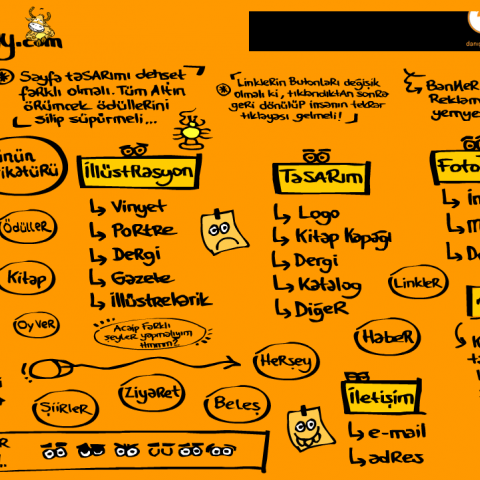 y.com
Sayfa tasarımı dehşet
farklı olmalı. Tüm Altın
örümcek ödüllerini
silip süpürmeli...
Linklerin Butonları değişik
olmalı ki, tıklandıktan sonra
geri dönülüp insanın tekrar
tıklayası gelmeli!
Banner
Reklam
yemye
ünün
ikatürü
İllüstrasyon
Tasarım
Foto
Vinyet
Portre
Dergi
Gazete
İllüstrelerik
Logo
Kitap Kapağı
Dergi
Katalog
Diğer
Ödüller
Kitap
Oy Ver
Linkler
Acaip Farklı
şeyler yapmalıyım
Hmmm?
Haber
Herşey
Şiirler
Ziyaret
Beleş
İletişim
e-mail
adres